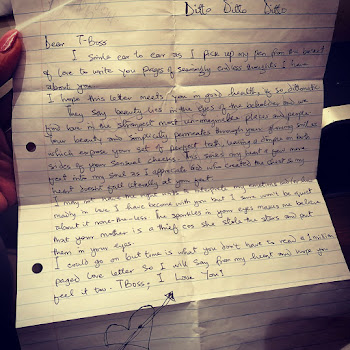 Ditto Ditto Ditto
Dear T-Boss
I smile ear to ear as I pick up my pen from the basket
of love to write you pages of seemingly endless thoughts I have
about you.
I hope this letter meets you in good health, if so, dittomatic
They say beauty lies in the eyes of the beholder and we
find love in the strangest most unimaginable places and people.
Your beauty and simplicity permeates through your glowing smile
which exposes your set of perfect teeth, leaving a dimple on both
sides of your sensual cheeks. This
feet into my soul as I appreciate God who created the
heart doesn't fall literally at your feet.
I may not
madly in love I have become with you but I sure won't be quiet
about it none-the-less. The sparkles in your eyes makes me believe
that your mother is a thief cos she stole the stars and put
them in your eyes.
I could go on but time is what you don't have to read a 1 million
paged love letter so I will say from my heart and hope you
feel it too. TBoss, I Love You!